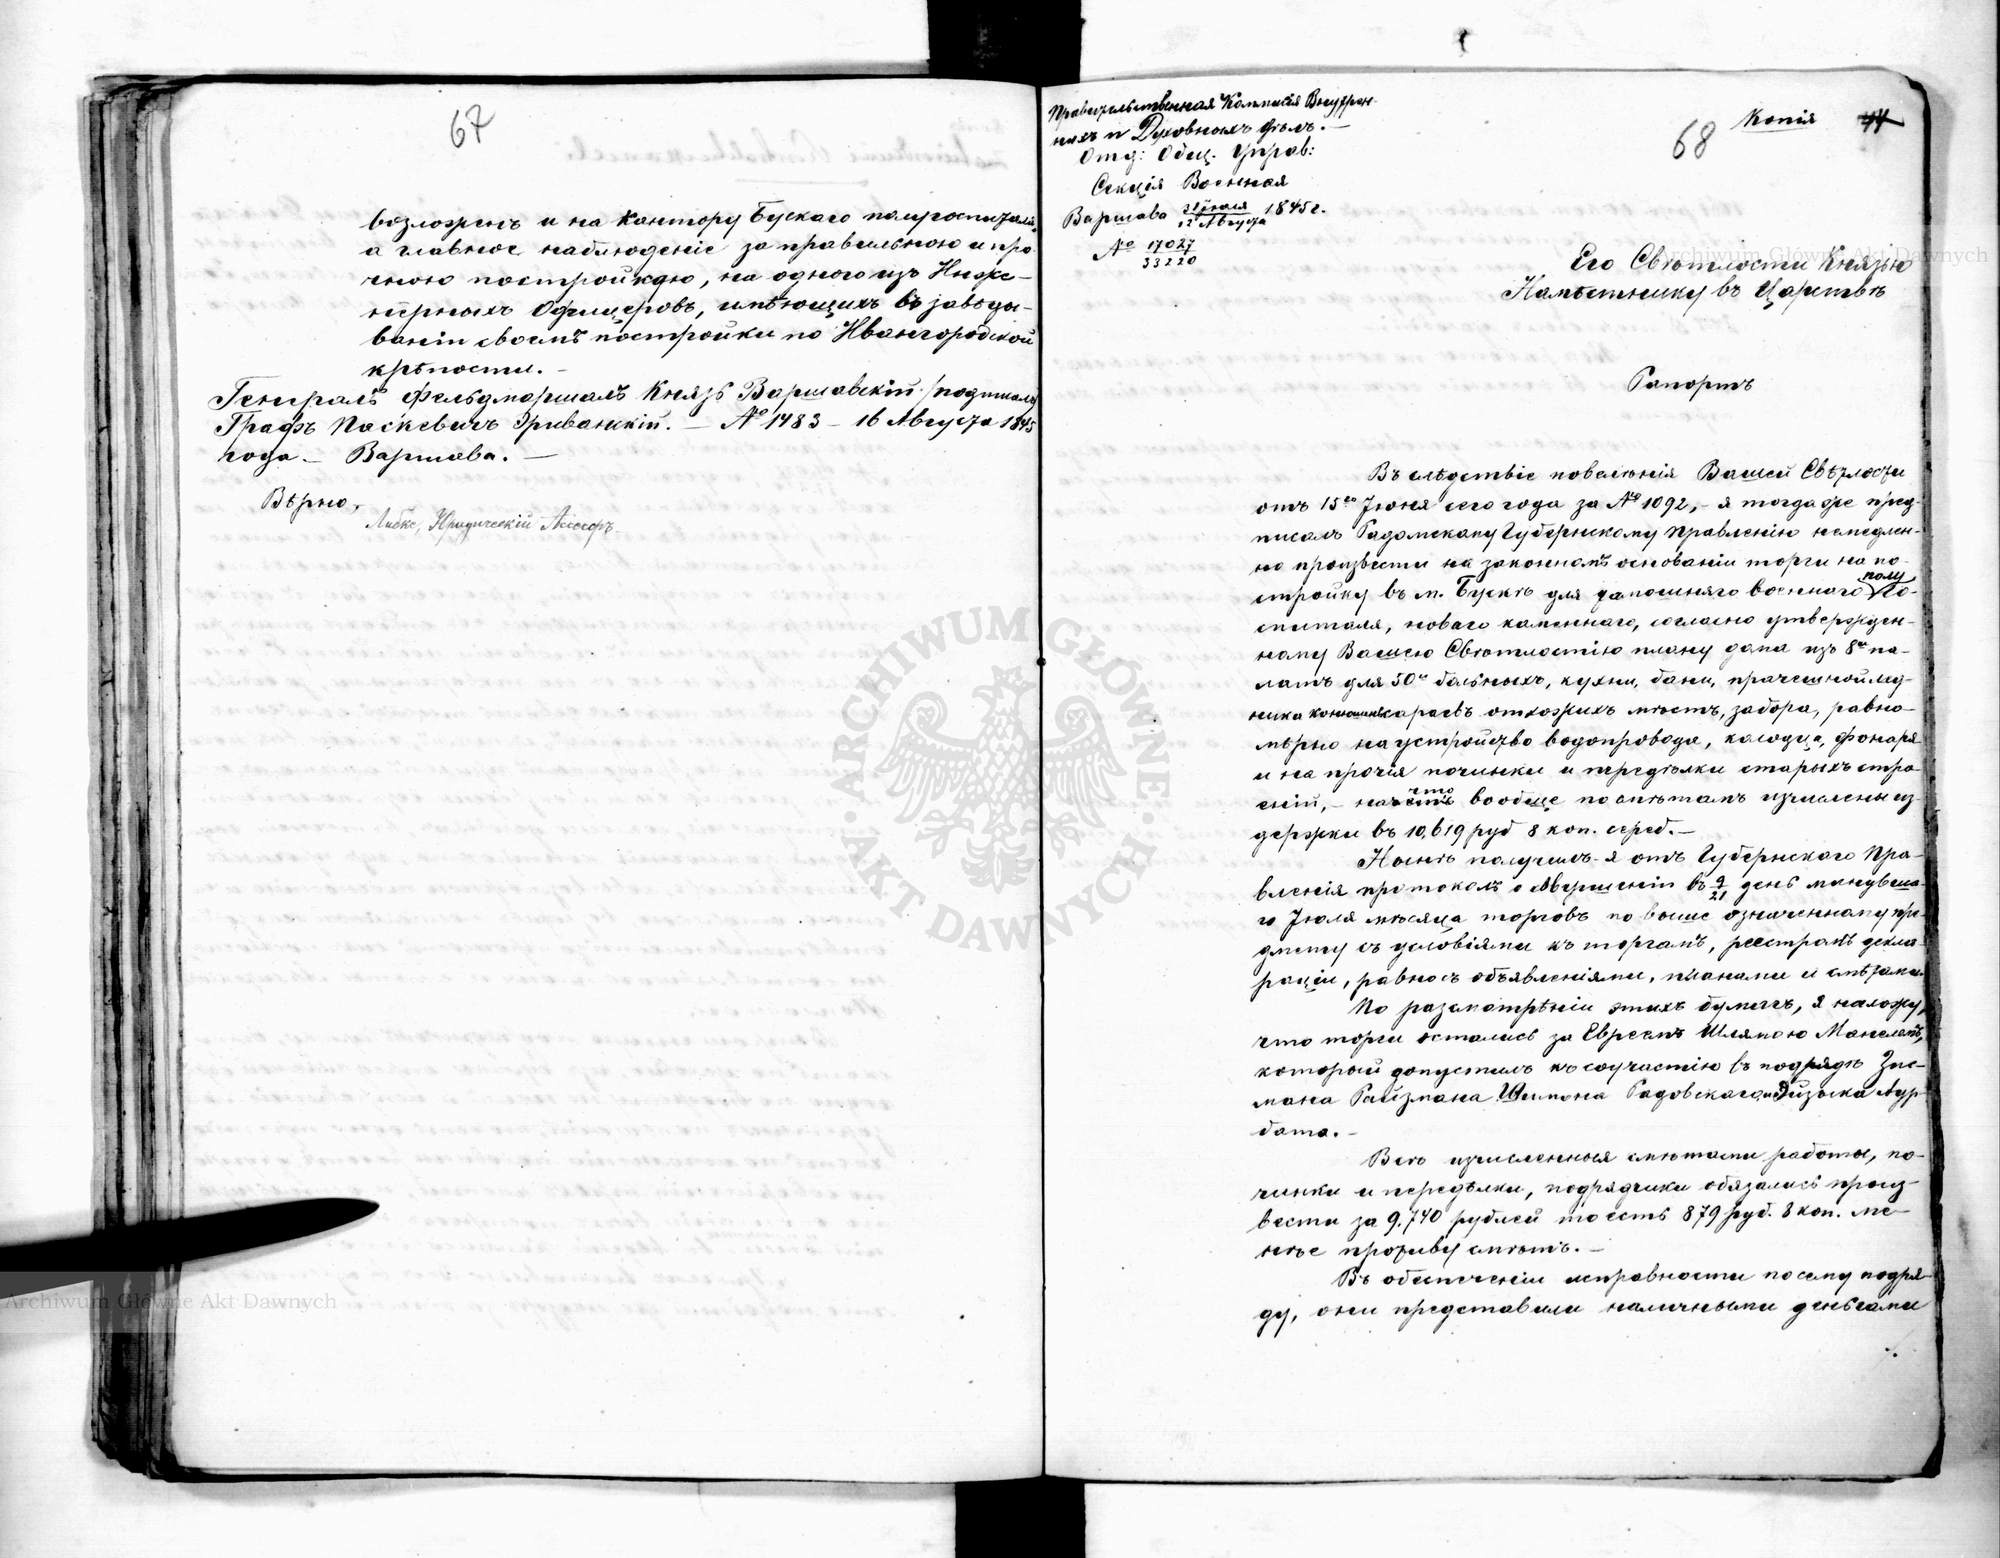 67
возложенъ и на Контору Бускаго полугоспиталя,
а главное наблюденіе за правильною и про-
чною постройкою, на одного изъ Инже-
нерныхъ Офицеровъ, имѣющихъ въ завѣды-
ваніи своемъ постройки по Ивангородской
крѣпости. –
Генералъ Фельдмаршалъ Князь Варшавскій /подписалъ/
Графъ Паскевичъ Эриванскій. – № 1483 – 16 Августа 1845
года – Варшава. –
Вѣрно,
Юридическій Ассесоръ
Правительственная Коммисія Внутрен-
нихъ и Духовныхъ дѣлъ. –
Отд: Общ. Управ:
Секція Военная
Варшава 31 Іюля / 12 Августа 1845 г.
№ 17027 / 33220
68
Копія
44
Его Свѣтлости Князю
Намѣстнику въ Царствѣ
Рапортъ
Въ слѣдствіе повелѣнія Вашей Свѣтлости
отъ 15го Іюня сего года за № 1092, – я тогда же пред-
писалъ Радомскому Губернскому Правленію немедлен-
но произвести на законномъ основаніи торги на по-
стройку въ м. Бускѣ для тамошняго военнаго полуго-
спиталя, новаго каменнаго, согласно утвержден-
ному Вашею Свѣтлостію плану дома изъ 8и па-
латъ для 50и больныхъ, кухни, бани, прачешной лед-
ника конюшни сараевъ отхожихъ мѣстъ, забора, равно-
мѣрно на устройство водопровода, колодца, фонаря
и на прочія починки и передѣлки старыхъ стро-
еній, – на что вообще по смѣтамъ изчислены из-
держки въ 10,619 руб 8 коп. сереб. –
Нынѣ получилъ я отъ Губернскаго Пра-
вленія протоколъ о совершеніи въ 9/21 день минувша-
го Іюля мѣсяца торговъ по выше означенному пре-
дмету съ условіями къ торгамъ, реестромъ декла-
рацій, равно съ объявленіями, планами и смѣтами.
По разсмотрѣніи этихъ бумагъ, я нахожу,
что торги остались за Евреемъ Шлямою
который допустилъ къ соучастію въ подрядѣ Зис-
мана Райзмана Шимона Радовскаго и Айзыка Аур-
баха. –
Всѣ изчисленныя смѣтами работы, по-
чинки и передѣлки, подрядчики обязались произ-
вести за 9,740 рублей то есть 879 руб. 8 коп. ме-
нѣе противу смѣтъ. –
Въ обезпеченіи исправности по сему подря-
ду, они представили наличными деньгами
Archiwum Główne Akt Dawnych
Archiwum Główne Akt Dawnych
ARCHIWUM GŁÓWNE AKT DAWNYCH